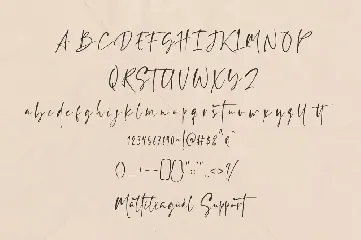 A B C D E F G H I J K L M N O P
Q R S T U V W X Y Z
a b c d e f g h i j k l m n o p q r s t u v w x y z
1234567890
Multileagual Support